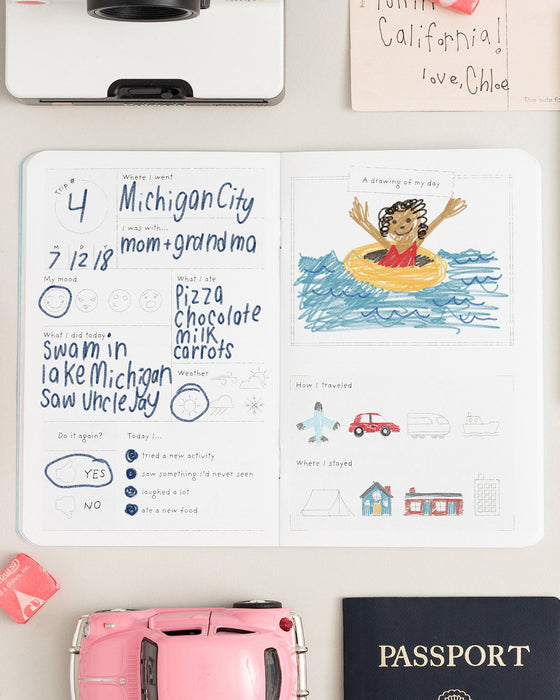 California!
love, Chloe
This side fo
Trip #
4
Where I went
Michigan City
I was with...
mom + grandma
M D Y
7 12 18
My mood
What I ate
Pizza
chocolate
milk
carrots
What I did today
Swam in
lake Michigan
saw Uncle Jay
Weather
Do it again?
YES
NO
Today I...
tried a new activity
saw something I'd never seen
laughed a lot
ate a new food
A drawing of my day
How I traveled
Where I stayed
PASSPORT